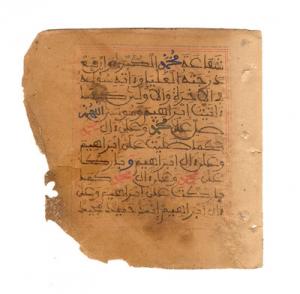 شفاعة محمد الكبرى وارفع
درجته العليا واته سؤله
في الاخرة والاولى كما
اتيت ابراهيم وموسى اللهم
صل على محمد وعلى ال
محمد كما صليت على ابراهيم
وعلى ال ابراهيم وبارك
على محمد وعلى ال محمد كما
باركت على ابراهيم وعلى
ال ابراهيم انك حميد مجيد